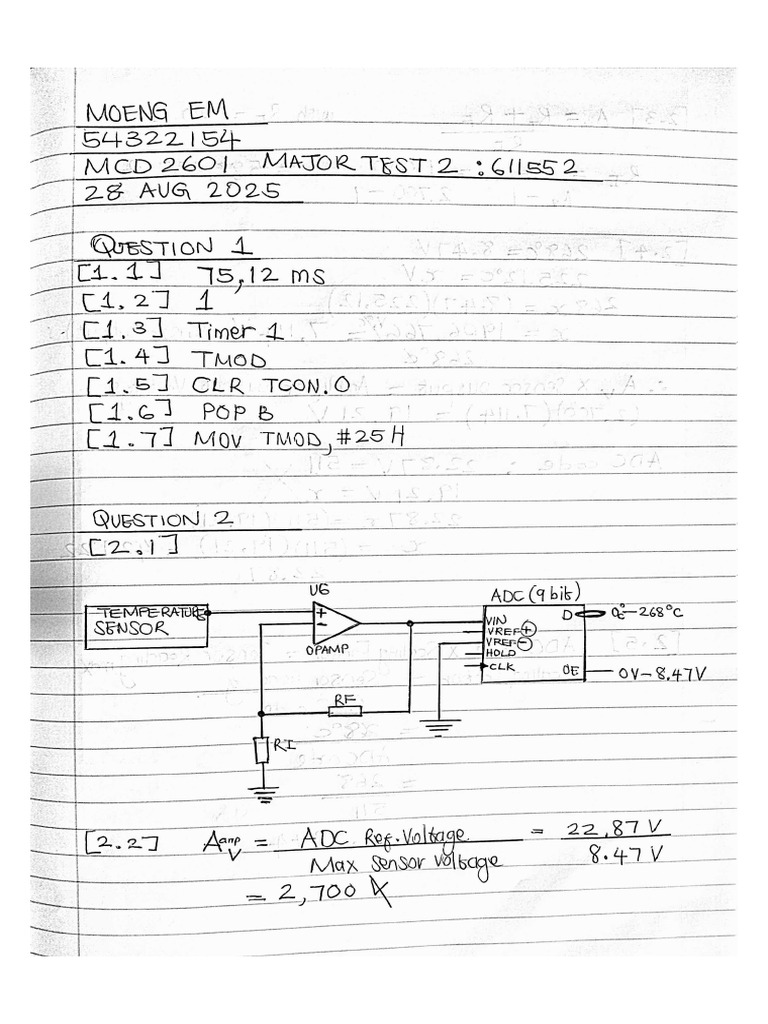 MOENG EM
54322154
MCD 2601 MAJOR TEST 2 : 611552
28 AUG 2025
QUESTION 1
[1.1] 75,12 ms
[1.2] 1
[1.3] Timer 1
[1.4] TMOD
[1.5] CLR TCON.0
[1.6] POP B
[1.7] MOV TMOD, #25H
QUESTION 2
[2.1]
TEMPERATURE SENSOR
U6
+
-
OPAMP
RF
RI
ADC (9 bit)
VIN
VREF +
VREF -
HOLD
CLK
D
0°-268°C
OE
0V-8.47V
[2.2] Aamp V = ADC Ref. Voltage / Max sensor voltage = 22,87 V / 8.47 V
= 2,700